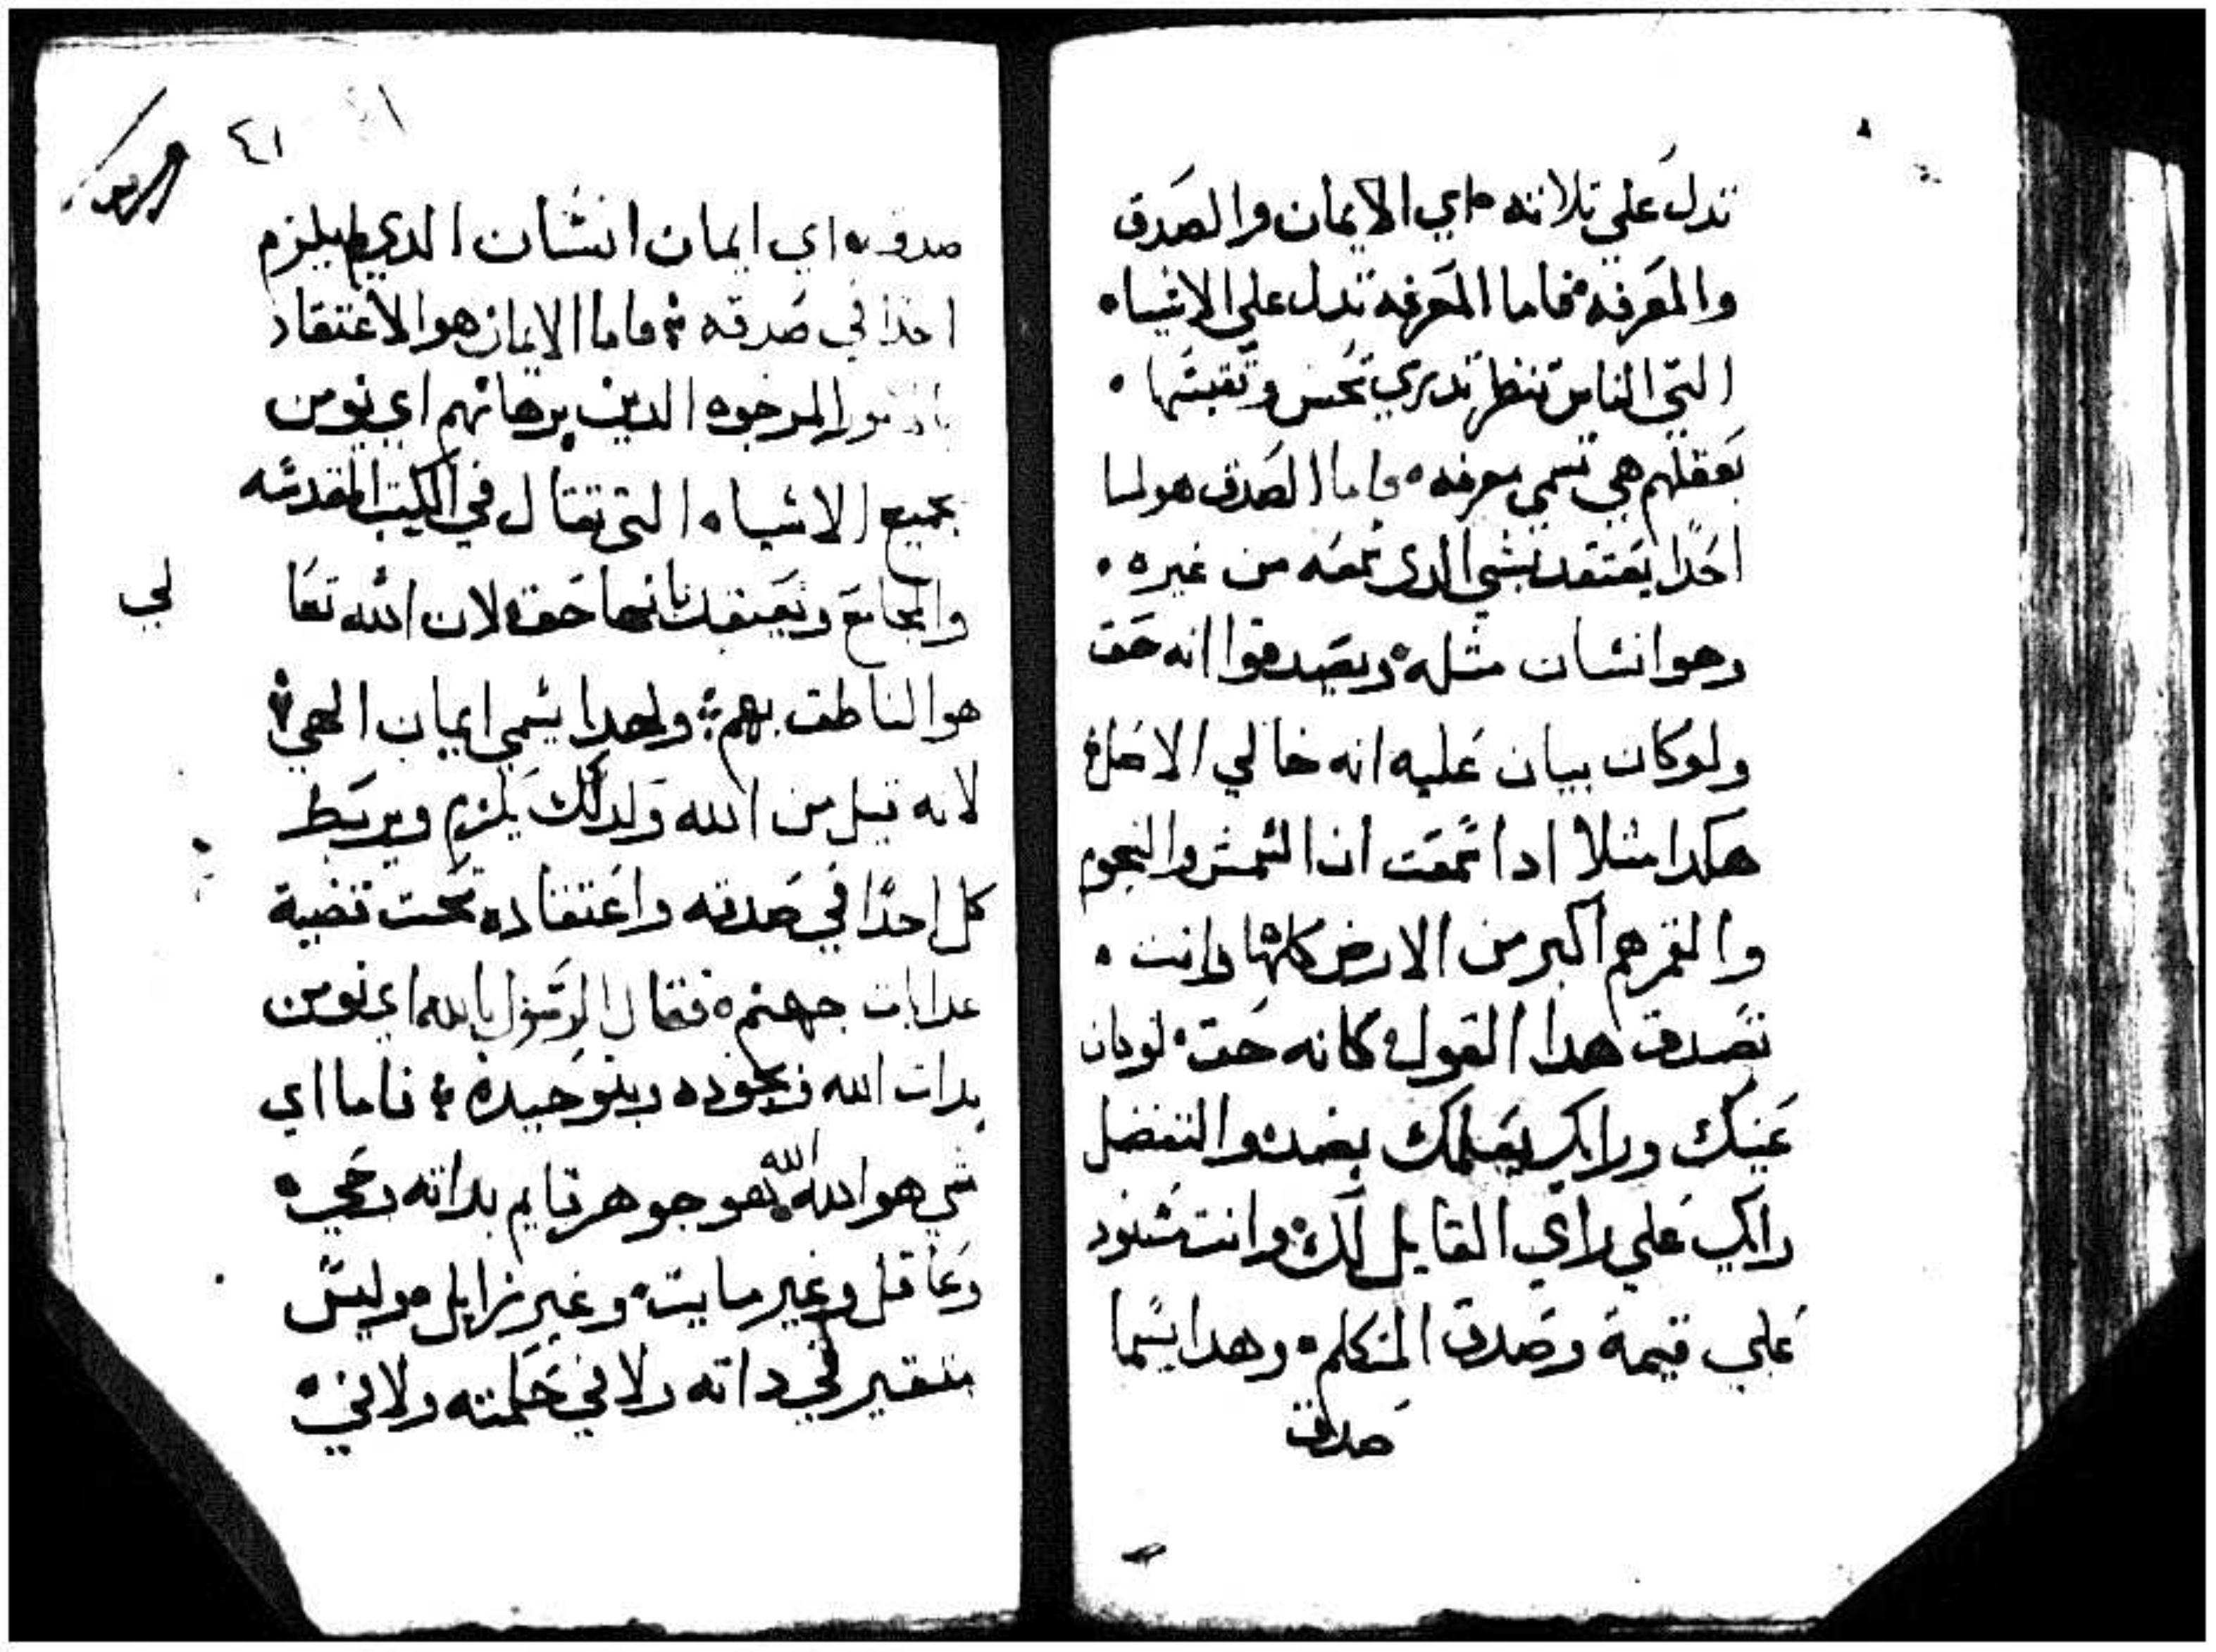 تدل علي تلاته اي الايمان والصدق
والمعرفه فاما المعرفه تدل علي الاشياء
التي الناس تنظر تدري تحس وتقبتها
بعقلهم هي تسمي معرفه فاما الصدق هو لما
احدًا يعتقد بشي الدي سمعه من غيره
وهو انسان مثله ويصدقوا انه حق
ولو كان بيان عليه انه خالي الاصل
هكدا مثلا ادا سمعت ان الشمس والنجوم
والقمر هم اكبر من الارض كلها وانت
تصدق هدا القول كانه حق لو كان
عينك ورايك يعلمك بضده والتفضل
رايك علي راي القايل لك وانت تسنود
علي قيمة وصدق المتكلم وهدا يسما
صدق
٤١
صدق اي ايمان انسان الدي لم يلزم
احدًا في صدقه فاما الايمان هو الاعتقاد
المرجوه الدين برهانهم اي نومن
بجميع الاشياء التي تقال في الكتب المقدسه
والمجامع ونعتقد بانها حق لان الله تعا
لي
هو الناطق بهم ولهدا يسمي ايمان الهي
لانه قيل من الله ولدلك يلزم ويربط
كل احدًا في صدقه واعتقاده تحت قضية
عدابات جهنم فقال الرسول بالله اي نومن
بدات الله وبجوده وبتوحيده فاما اي
شي هو الله الله هو جوهر قايم بداته وحي
وعاقل وغير مايت وغير زايل وليس
متغير في داته ولا في حكمته ولا في